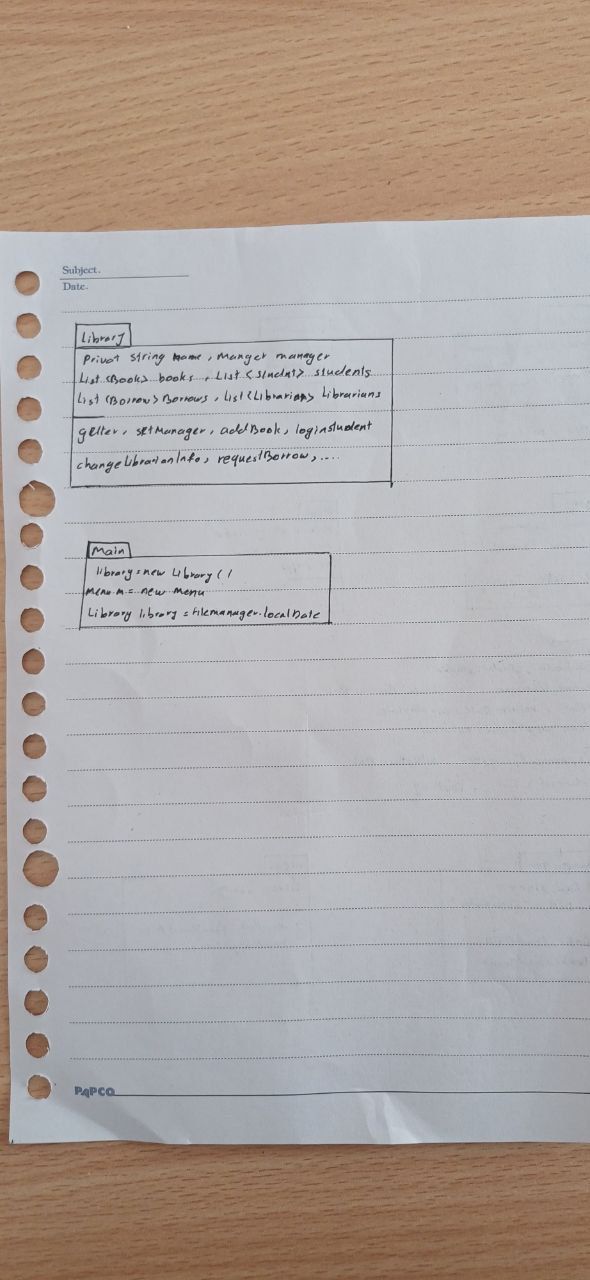 Subject.
Date.
Library
Privat String name, Manger manager
List <Book> books, List <Studnt> students
List <Borrow> Borrows, List <Librarian> Librarians
getter, setManager, addBook, loginstudent
changeLibrarianInfo, requestBorrow, ....
Main
library = new Library ( )
Menu m = new Menu
Library library = Filemanager.localDate
PAPCO